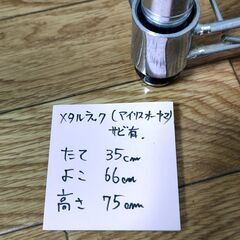 メタルラック(アイリスオーヤマ)
サビ有.
たて 35cm
よこ 66cm
高さ 75cm